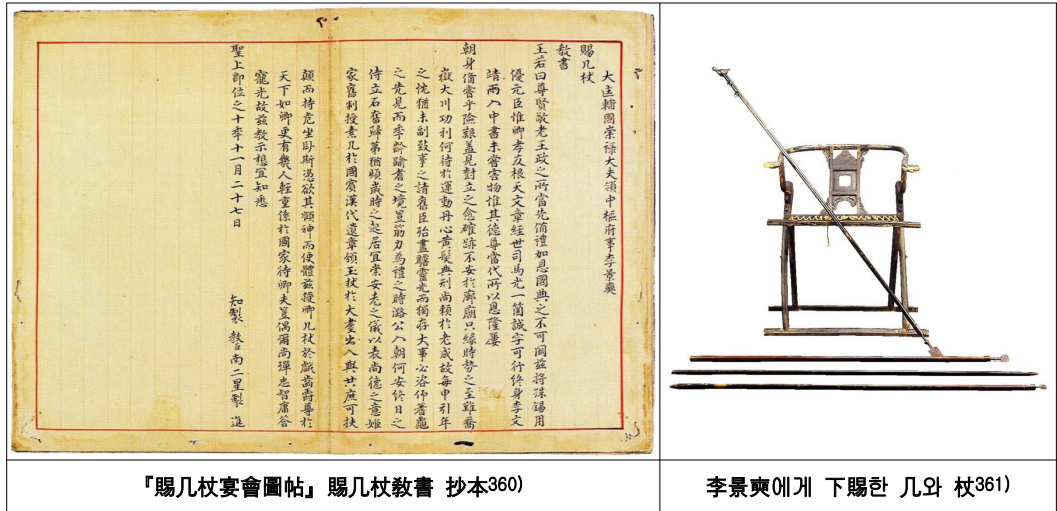 大匡輔國崇祿大夫領中樞府事李景奭
賜几杖
教書
王若曰尊賢敬老王政之所當先備禮加恩國典之不可闕玆將殊錫用
優元臣惟卿孝友根天文章經世司馬光一箇誠字可行終身李文
靖兩入中書未嘗害物惟其德尊當代所以恩隆屢
朝身備嘗乎險艱盖見對立之愈確跡不安於廊廟只緣時勢之至難喬
嶽大川功利何待於運動丹心黃髮典刑尚賴於老成故每申引年
之忱猶未副致事之請舊臣殆盡瞻靈光而獨存大事必咨仰蓍龜
之先見而季齡踰耆之境豈筋力為禮之時潞公入朝何安終日之
侍立石奮歸第猶頻歲時之起居宜崇安老之儀以表尚德之意姬
家舊制授素几於國賓漢代遺章頒玉杖於大耋出入與共庶可扶
顛而持危坐臥斯憑欲其頤神而便體玆授卿几杖於戲齒爵尊於
天下如卿更有幾人輕重係於國家待卿夫豈偶爾尚殫忠智庸答
寵光故玆敎示想宜知悉
聖上即位之十季十一月二十七日
知製 敎臣南二星製 進
『賜几杖宴會圖帖』賜几杖敎書 抄本360)
李景奭에게 下賜한 几와 杖361)